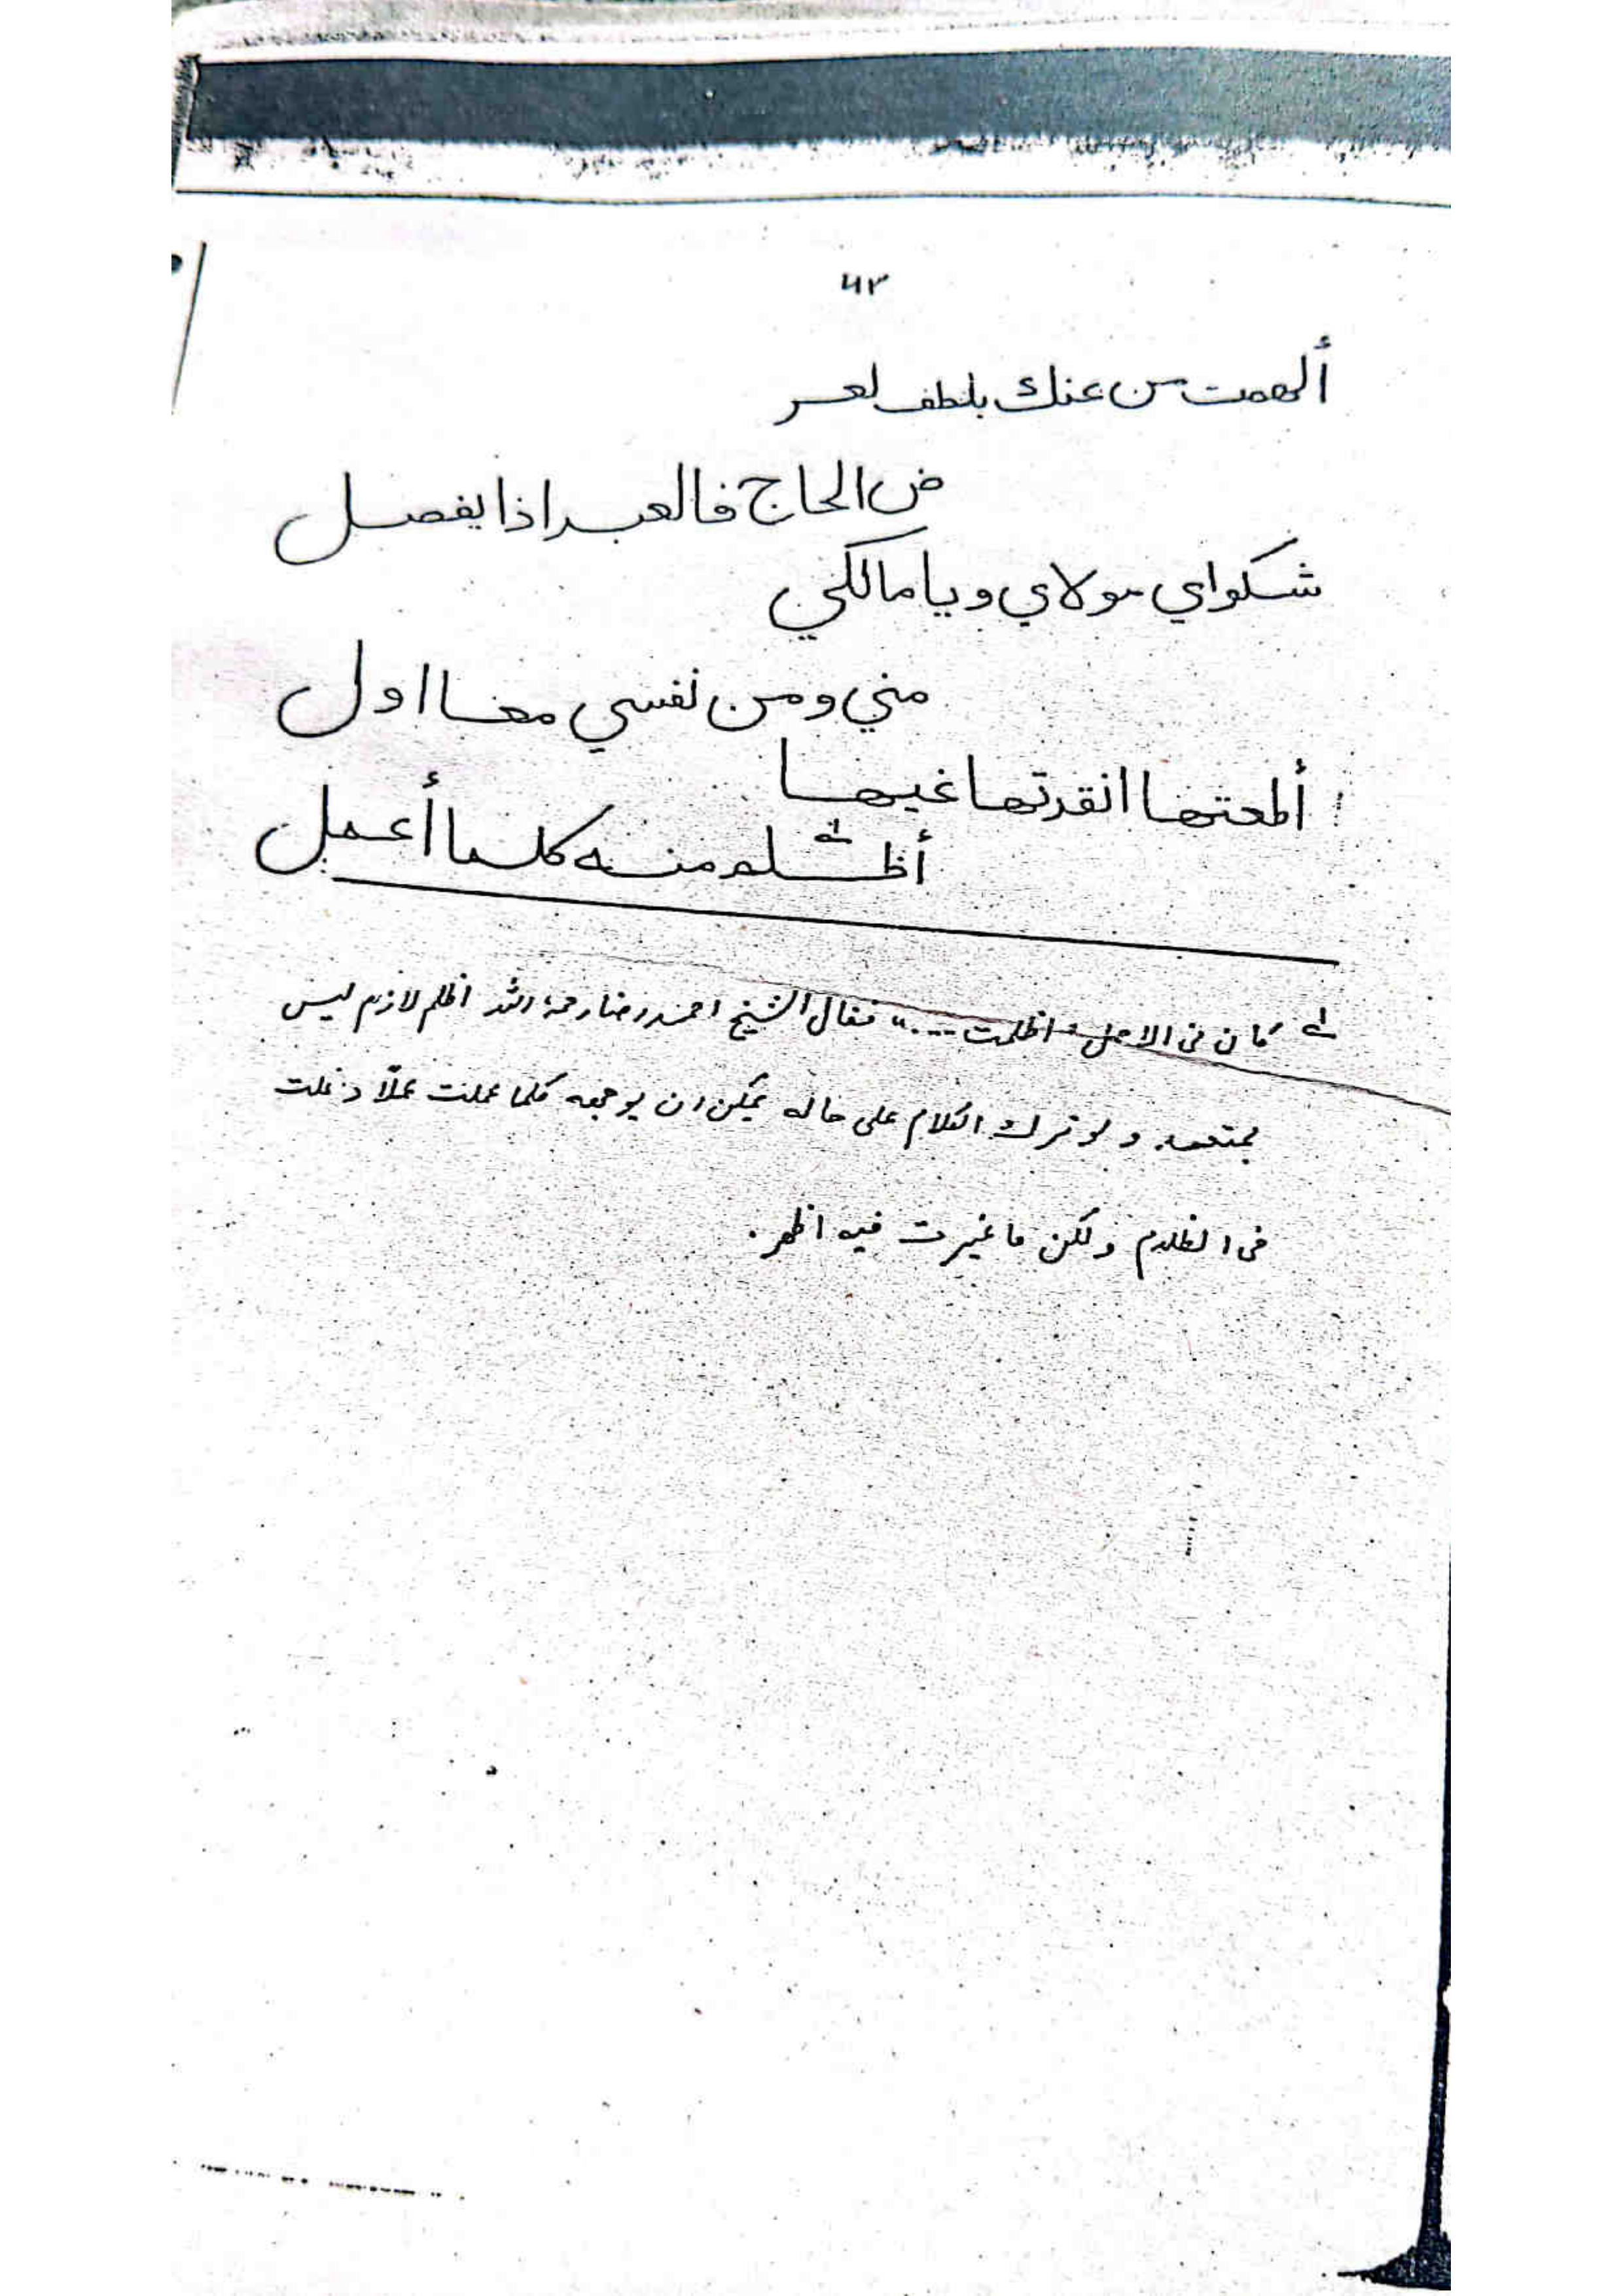 ٤٢
ألهمت من عندك بلطف لعر
ض الحاج فالعبد اذا يفصل
شكواي مولاي ويا مالكي
مني ومن نفسي معا اول
أطعتها انقدتها غيها
أظلم منه كلما أعمل
كان فى الاصل "اظلمت ...." فقال الشيخ احمد رضا رحمه الله اظلم لازم ليس
بمتعد ولو ترك الكلام على حاله يمكن ان يوجه كلما عملت عملا دخلت
فى الظلام ولكن ما غيرت فيه اظهر.